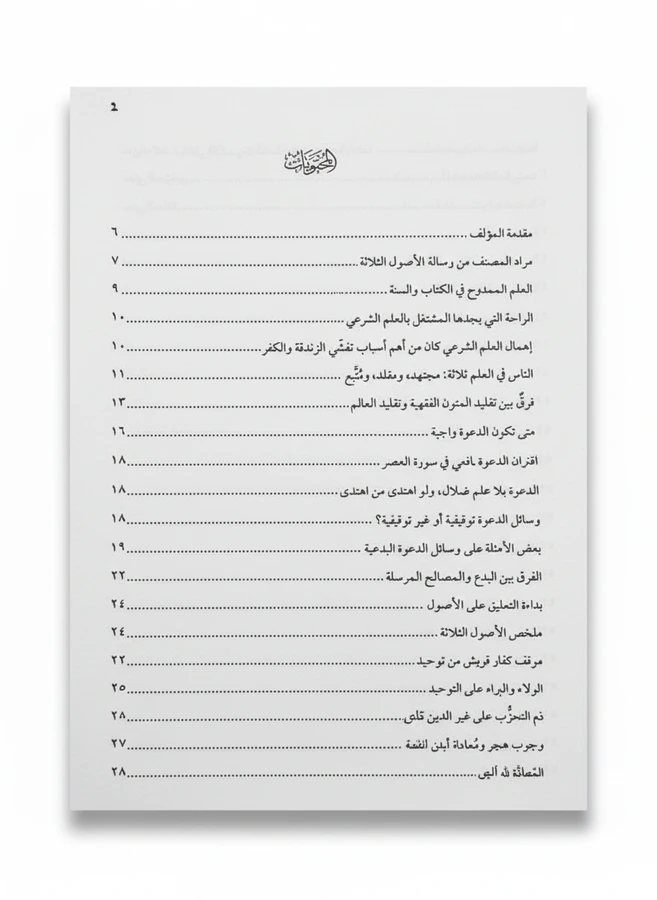 2
المحتويات
مقدمة المؤلف ٦
مراد المصنف من رسالة الأصول الثلاثة ٧
العلم الممدوح في الكتاب والسنة ٩
الراحة التي يجدها المشتغل بالعلم الشرعي ١٠
إهمال العلم الشرعي كان من أهم أسباب تفشّي الزندقة والكفر ١٠
الناس في العلم ثلاثة: مجتهد، ومقلد، ومُتَّبع ١١
فرقٌ بين تقليد المتون الفقهية وتقليد العالم ١٣
متى تكون الدعوة واجبة ١٦
اقتران الدعوة في سورة العصر ١٨
الدعوة بلا علم ضلال، ولو اهتدى من اهتدى ١٨
وسائل الدعوة توقيفية أو غير توقيفية؟ ١٨
بعض الأمثلة على وسائل الدعوة البدعية ١٩
الفرق بين البدع والمصالح المرسلة ٢٢
بداءة التعليق على الأصول ٢٤
ملخص الأصول الثلاثة ٢٤
موقف كفار قريش من توحيد ٢٢
الولاء والبراء على التوحيد ٢٥
ذم التحزُّب على غير الدين ٢٨
وجوب هجر ومُعاداة ٢٧
لله ٢٨